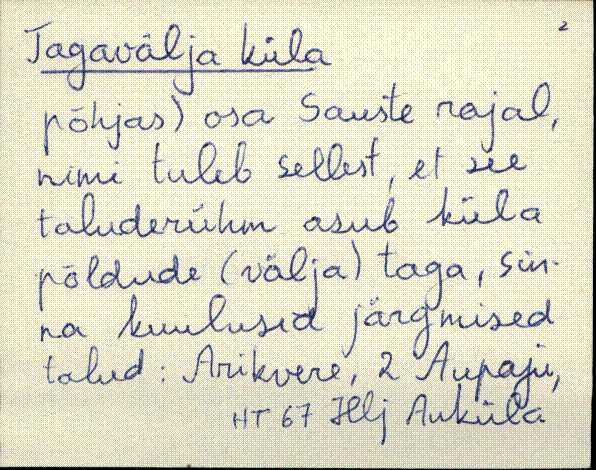 2
Tagavälja küla
põhjas) osa Sauste rajal,
nimi tuleb sellest, et see
taluderühm asub küla
põldude (välja) taga, sin-
na kuulusid järgmised
talud: Arikvere, 2 Aupaju,
HT 67 Hlj Auküla